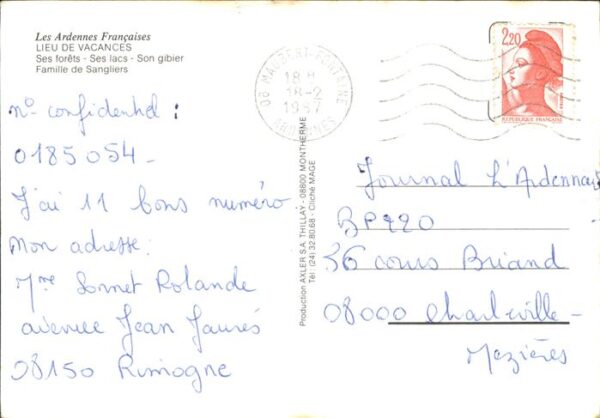 Les Ardennes Françaises
LIEU DE VACANCES
Ses forêts - Ses lacs - Son gibier
Famille de Sangliers
n° confidentiel :
0185054-
J'ai 11 bons numéro
Mon adresse:
Mme Sonnet Rolande
avenue Jean Jaurés
08150 Rimogne
Production AXLER S.A. THILLAY - 08800 MONTHERME
Tél: (24) 32.80.68 - Cliché MAGE
08 MAUBERT-FONTAINE
18 H
18-2
1987
ARDENNES
2,20
REPUBLIQUE FRANÇAISE
Journal L'Ardennais
BP220
36 cours Briand
08000 Charleville-
Mezières